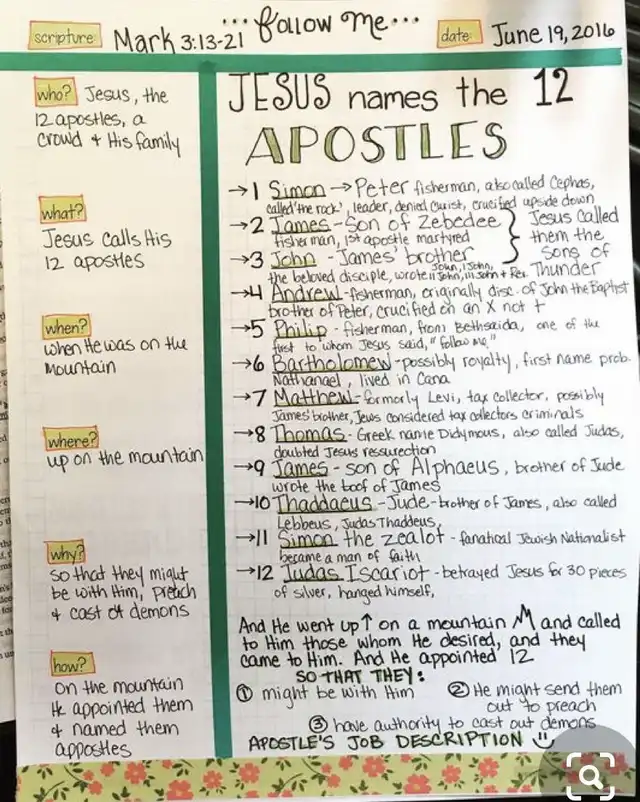 ...follow Me...
scripture: Mark 3:13-21
date: June 19, 2016
who? Jesus, the
12 apostles, a
crowd & His family
what?
Jesus calls His
12 apostles
when?
when He was on the
mountain
where?
up on the mountain
why?
so that they might
be with Him, preach
& cast out demons
how?
on the mountain
He appointed them
& named them
appostles
JESUS names the 12
APOSTLES
→1 Simon → Peter fisherman, also called Cephas,
called 'the rock', leader, denied Christ, crucified upside down
→2 James - son of Zebedee
fisherman, 1st apostle martyred
→3 John - James' brother
the beloved disciple, wrote John, I John, II John, III John & Rev.
} Jesus called
them the
sons of
Thunder
→4 Andrew - fisherman, originally disc. of John the Baptist
brother of Peter, crucified on an X not +
→5 Philip - fisherman, from Bethsaida, one of the
first to whom Jesus said, "follow me"
→6 Bartholomew - possibly royalty, first name prob.
Nathanael, lived in Cana
→7 Matthew - formorly Levi, tax collector, possibly
James' brother, Jews considered tax collectors criminals
→8 Thomas - Greek name Didymous, also called Judas,
doubted Jesus ressurection
→9 James - son of Alphaeus, brother of Jude
wrote the boof of James
→10 Thaddaeus - Jude - brother of James, also called
Lebbeus, Judas Thaddeus,
→11 Simon the zealot - fanatical Jewish Nationalist
became a man of faith
→12 Judas Iscariot - betrayed Jesus for 30 pieces
of silver, hanged himself,
And He went up↑ on a mountain and called
to Him those whom He desired, and they
came to Him. And He appointed 12
SO THAT THEY:
① might be with Him
② He might send them
out to preach
③ have authority to cast out demons
APOSTLE'S JOB DESCRIPTION